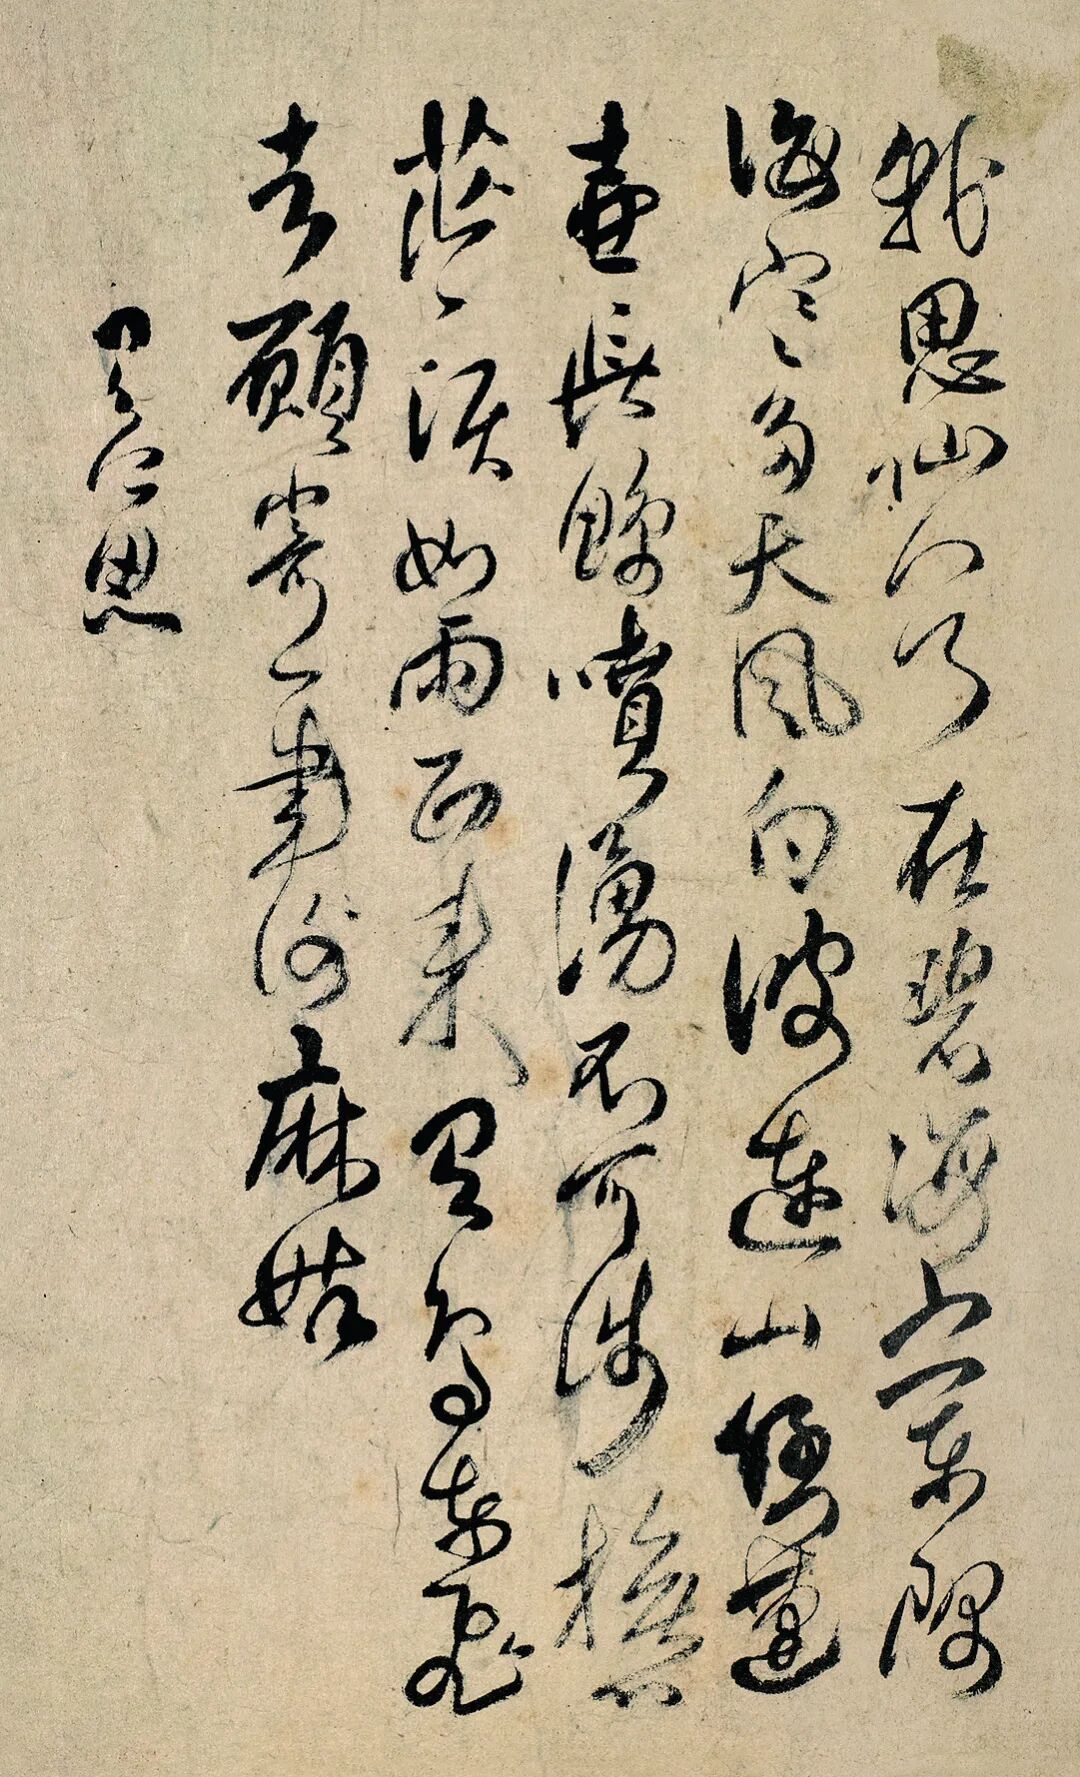 我思仙人乃在碧海之東隅
海寒多天風白波連山倒蓬
壺長鯨噴湧不可涉撫心
茫茫淚如雨西來青鳥東飛
去願寄一書謝麻姑
所思